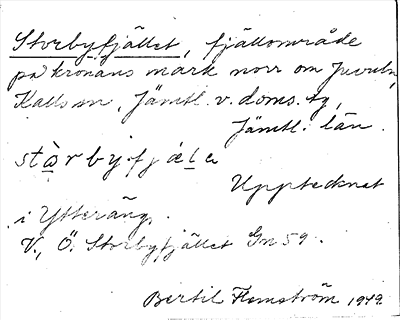 Storbyfjället, fjällområde
på kronans mark norr om Juveln,
Kalls sn, Jämtl. v. doms. tg,
Jämtl. län.
stòrbyfjæ̀le
Upptecknat
i Ytteräng.
V., Ö. Storbyfjället Gn 59.
Bertil Flemström 1949.